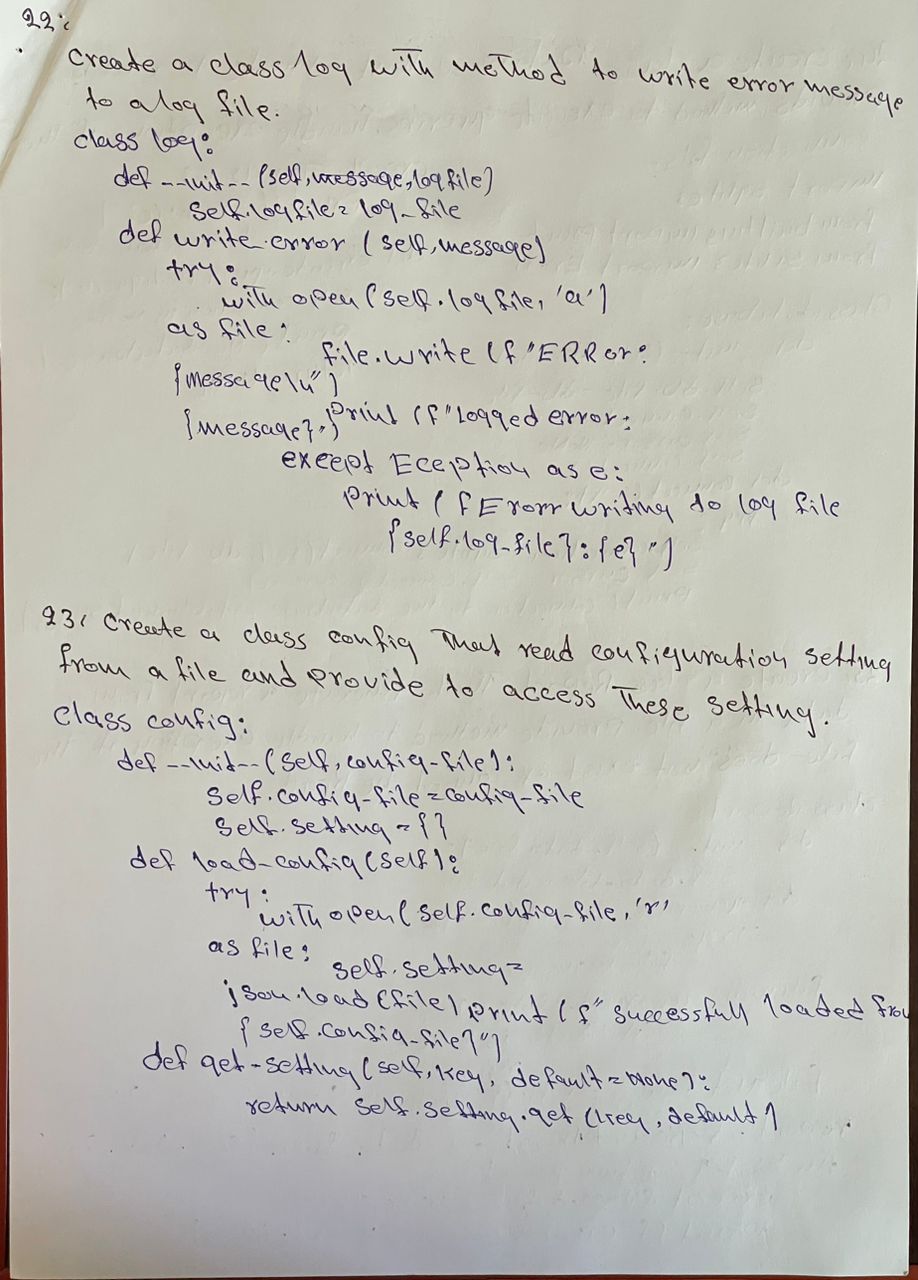 22:
Create a class log with method to write error message
to a log file.
class log:
def __init__ (self, message, log file)
self.logfile = log_file
def write.error (self, message)
try:
with open (self.log file, 'a')
as file:
file.write (f "ERRor:
{message\n")
print (f"Logged error:
{message}")
except Eception as e:
print (f Erorr writing to log file
{self.log_file}: {e} ")
23. Create a class config that read configuration setting
from a file and provide to access these setting.
class config:
def __init__ (self, config-file):
self.config-file = config-file
self.setting = {}
def load-config (self):
try:
with open (self.config-file, 'r'
as file:
self.setting =
json.load (file) print (f" successfull loaded from
{self.config-file}")
def get-setting (self, key, default = None):
return self.setting.get (key, default)